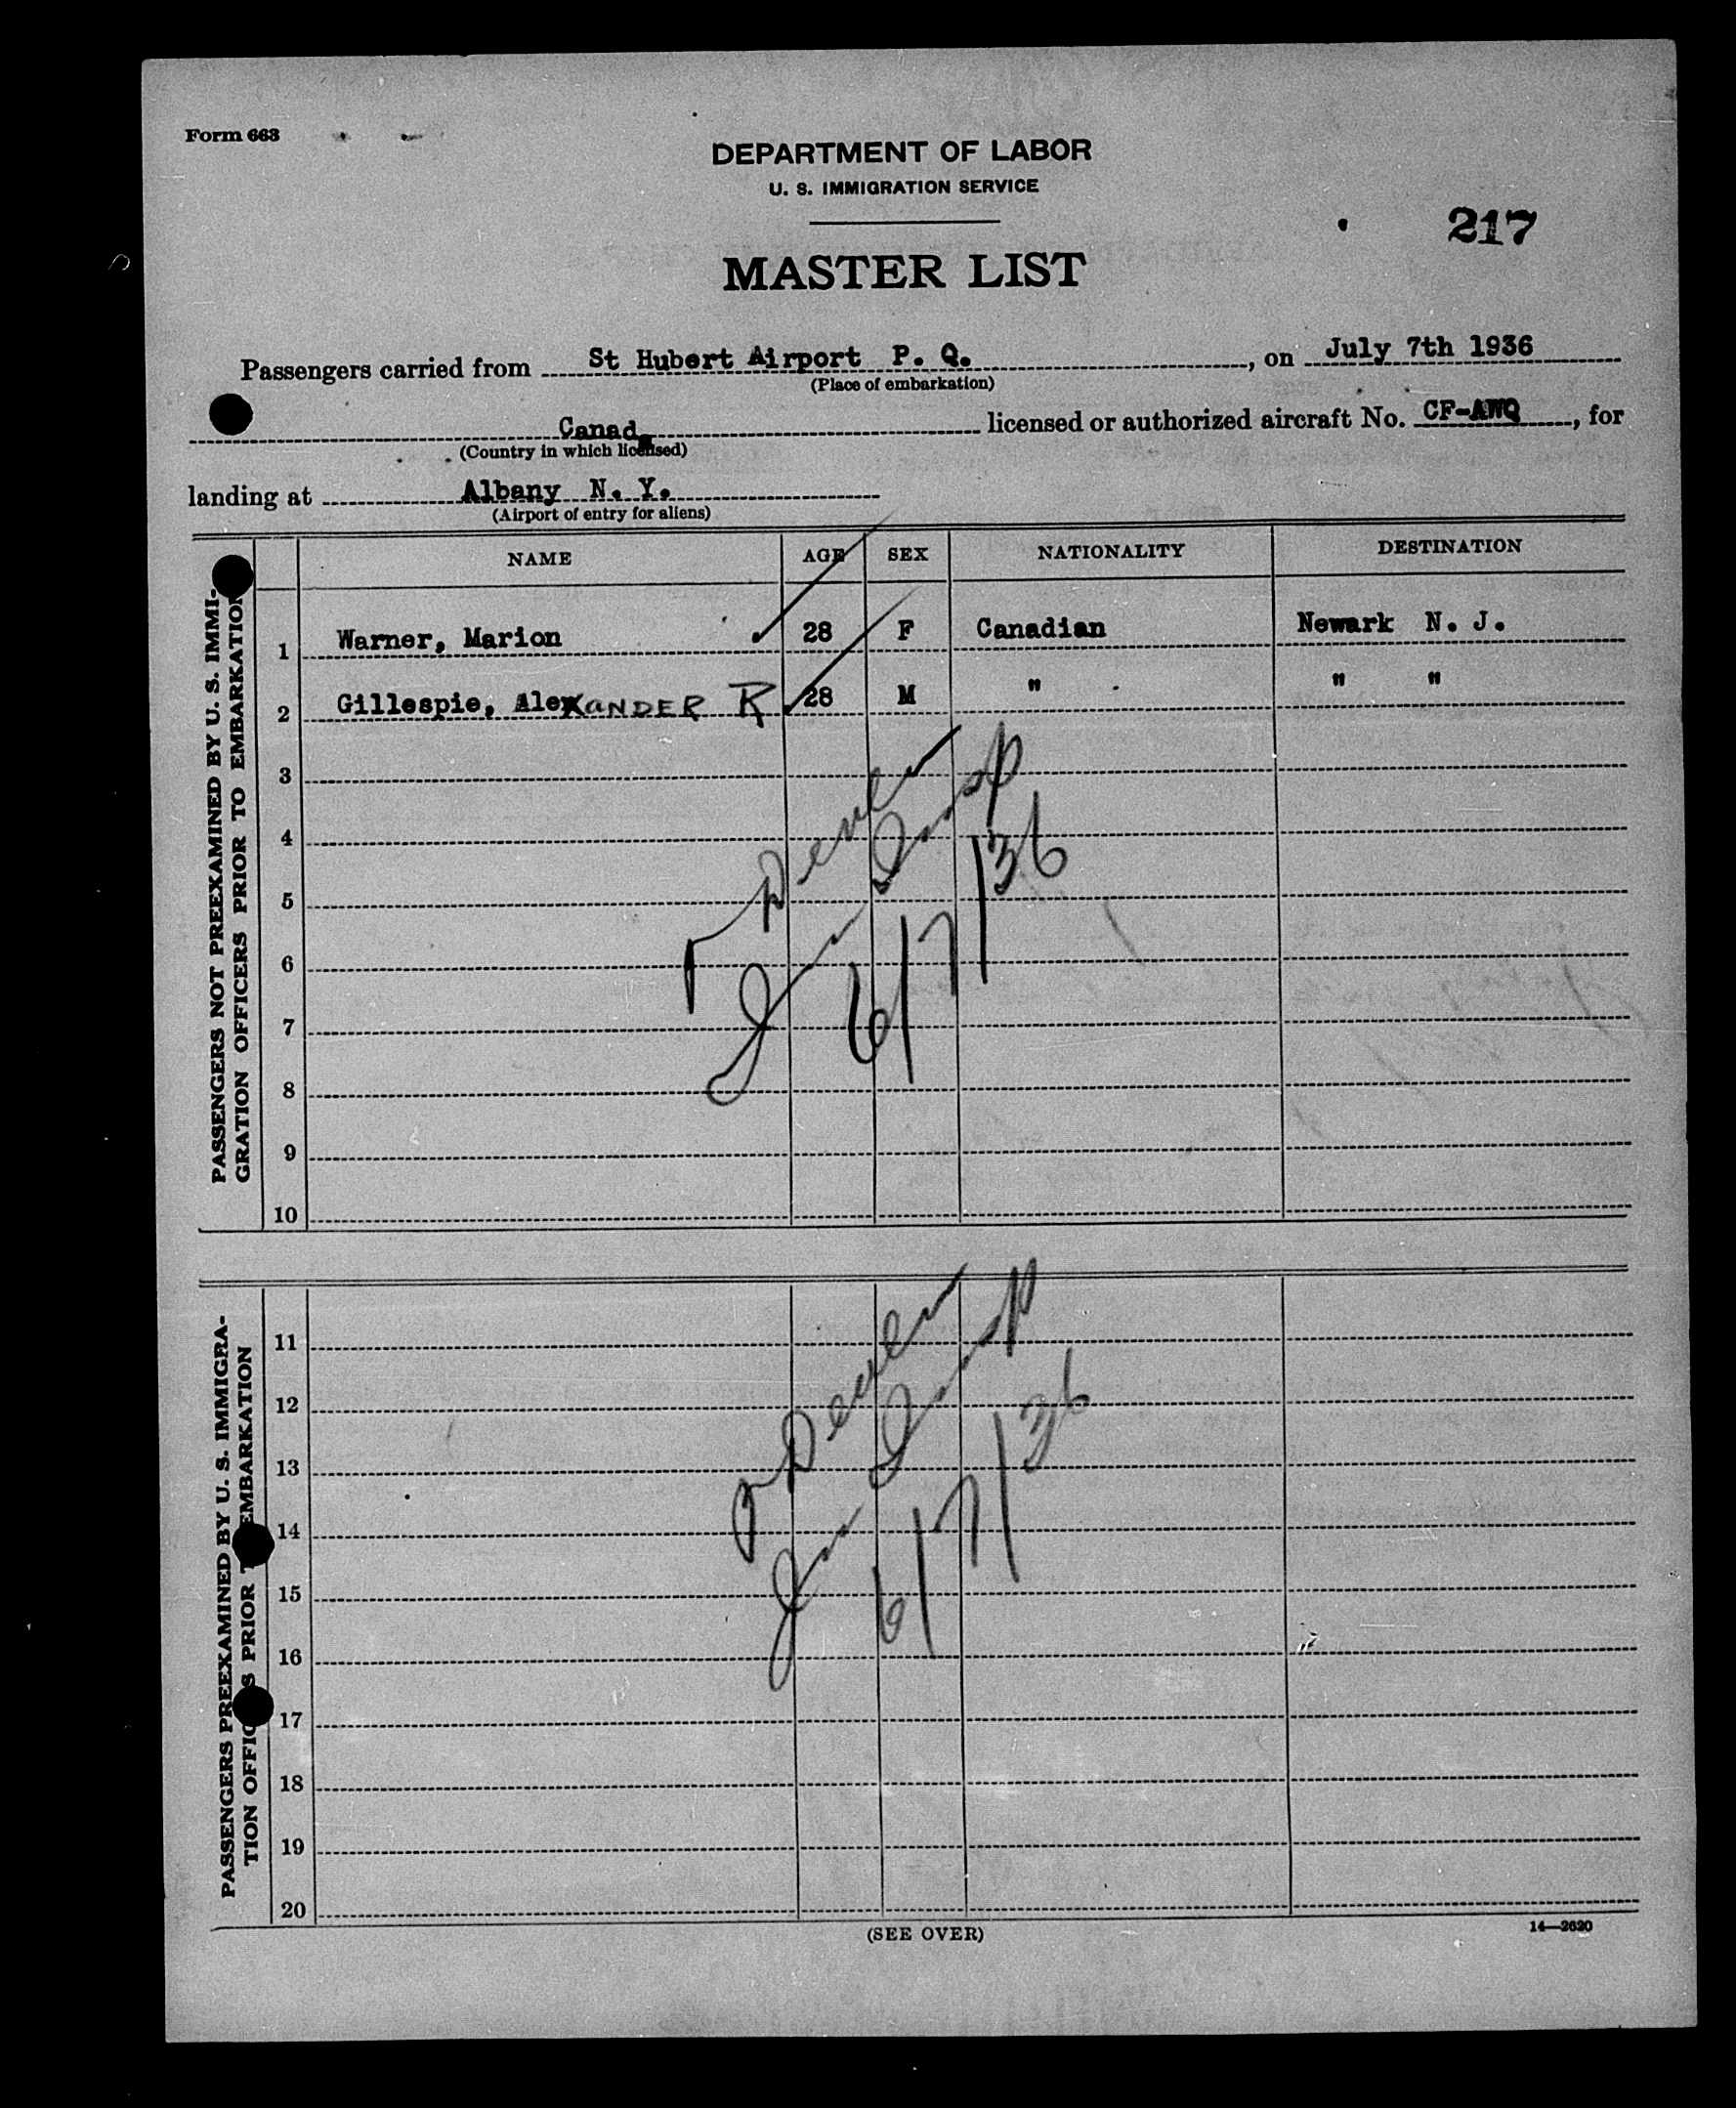 Form 663
DEPARTMENT OF LABOR
U. S. IMMIGRATION SERVICE
217
MASTER LIST
Passengers carried from St Hubert Airport P. Q., on July 7th 1936
(Place of embarkation)
Canada licensed or authorized aircraft No. CF-AWQ, for
(Country in which licensed)
landing at Albany N. Y.
(Airport of entry for aliens)
NAME AGE SEX NATIONALITY DESTINATION
PASSENGERS NOT PREEXAMINED BY U. S. IMMI-
GRATION OFFICERS PRIOR TO EMBARKATION
1 Warner, Marion 28 F Canadian Newark N. J.
2 Gillespie, AlexANDER R 28 M " " "
3
4
5
6
7
8
9
10
Insp
6/7/36
PASSENGERS PREEXAMINED BY U. S. IMMIGRA-
TION OFFICERS PRIOR TO EMBARKATION
11
12
13
14
15
16
17
18
19
20
Insp
6/7/36
(SEE OVER)
14—2620